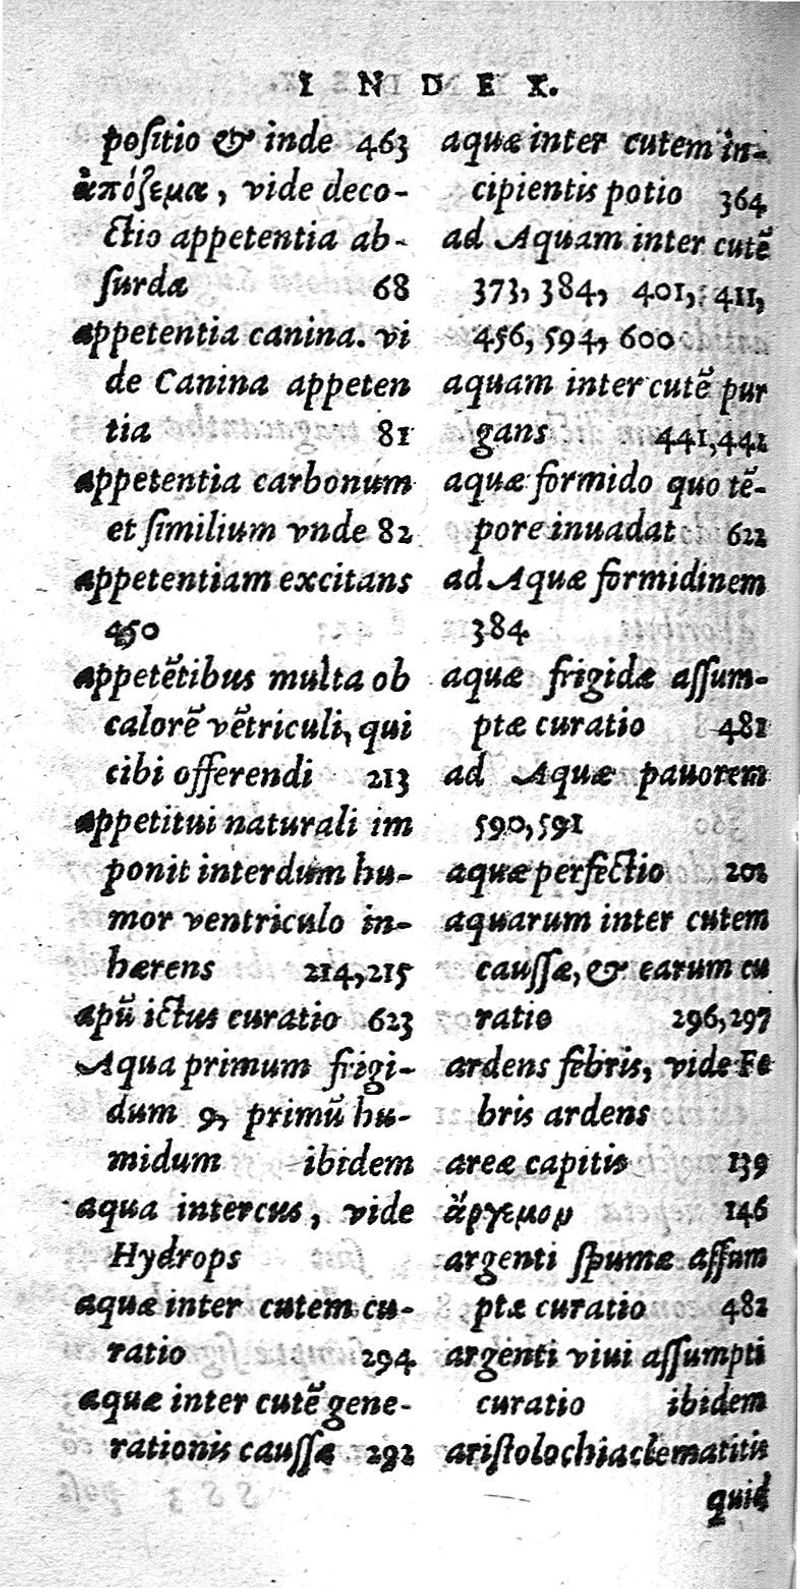 INDEX.
positio & inde 463
ἀπόζεμα, vide deco-
ctio appetentia ab-
surda 68
appetentia canina. vi
de Canina appeten
tia 81
appetentia carbonum
et similium vnde 82
appetentiam excitans
450
appetẽtibus multa ob
calorẽ vẽtriculi, qui
cibi offerendi 213
appetitui naturali im
ponit interdum hu-
mor ventriculo in-
hærens 214,215
apũ ictus curatio 623
Aqua primum frigi-
dum 9, primũ hu-
midum ibidem
aqua intercus, vide
Hydrops
aquæ inter cutem cu-
ratio 294
aquæ inter cutẽ gene-
rationis caussæ 292
aquæ inter cutem in-
cipientis potio 364
ad Aquam inter cutẽ
373, 384, 401, 411,
456, 594, 600
aquam inter cutẽ pur
gans 441,442
aquæ formido quo tẽ-
pore inuadat 622
ad Aquæ formidinem
384
aquæ frigidæ assum-
ptæ curatio 481
ad Aquæ pauorem
590,591
aquæ perfectio 202
aquarum inter cutem
caussæ, & earum cu
ratio 296,297
ardens febris, vide Fe
bris ardens
areæ capitis 139
ἄργεμον 146
argenti spumæ assum
ptæ curatio 482
argenti viui assumpti
curatio ibidem
aristolochia clematitis
quid